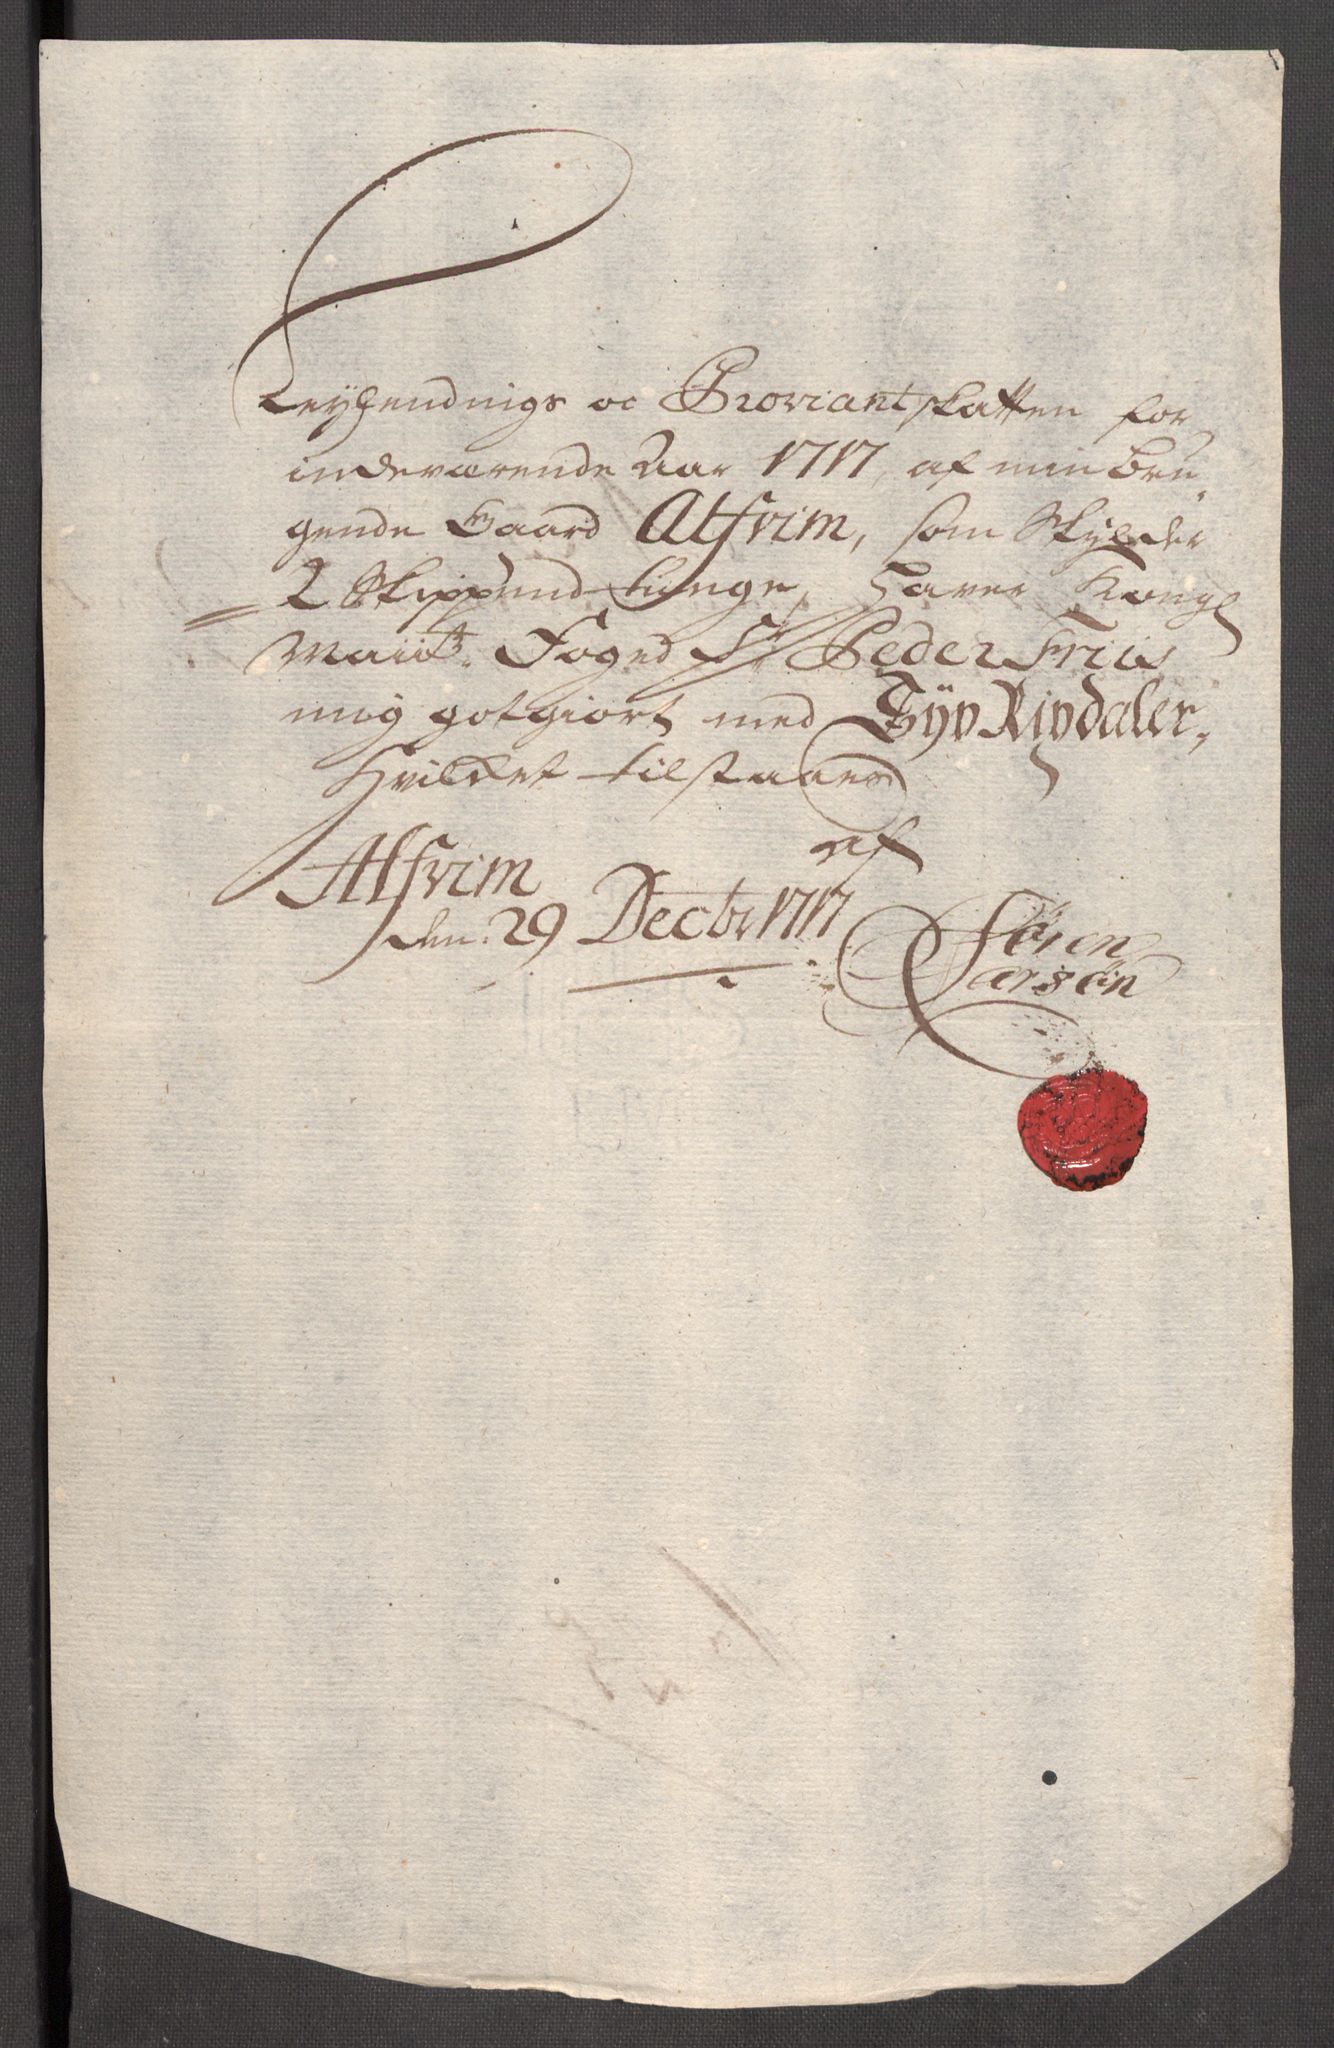 Leylendnigs oc Proviantskatten for
indeværende Aar 1717, af min bru
gende Gaard Alfvim, som Skylder
2 Skippund tunge, Haver Kongl
Maiits. Foged Sr Peder Friis
mig gotgiort med Syv Rixdaler,
Hvilket tilstaaes
af
Alfvim
den. 29 Decbr 1717
Sören
Larsön